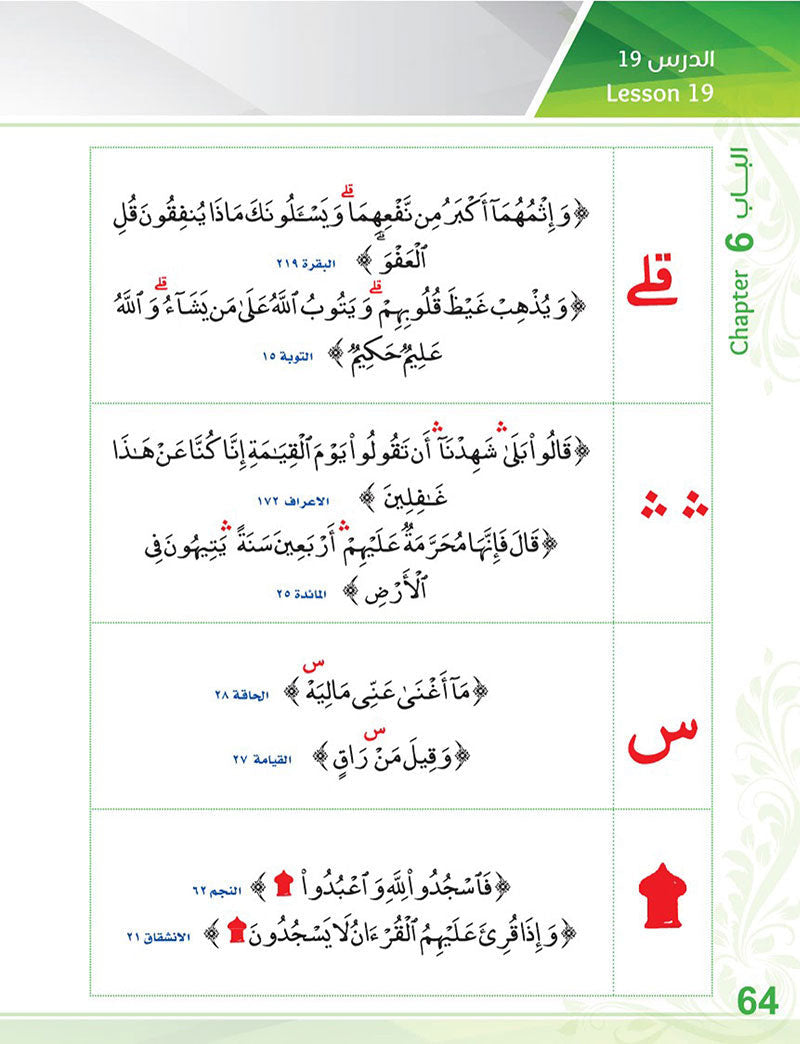 الدرس 19
Lesson 19
الباب 6 Chapter
قلے
﴿وَإِثْمُهُمَآ أَكْبَرُ مِن نَّفْعِهِمَاۗ وَيَسْـَٔلُونَكَ مَاذَا يُنفِقُونَ قُلِ
ٱلْعَفْوَۗ ﴾ البقرة ٢١٩
﴿وَيُذْهِبْ غَيْظَ قُلُوبِهِمْۗ وَيَتُوبُ ٱللَّهُ عَلَىٰ مَن يَشَآءُۗ وَٱللَّهُ
عَلِيمٌ حَكِيمٌ ﴾ التوبة ١٥
ۛ ۛ
﴿قَالُوا۟ بَلَىٰۛ شَهِدْنَآۛ أَن تَقُولُوا۟ يَوْمَ ٱلْقِيَـٰمَةِ إِنَّا كُنَّا عَنْ هَـٰذَا
غَـٰفِلِينَ ﴾ الاعراف ١٧٢
﴿قَالَ فَإِنَّهَا مُحَرَّمَةٌ عَلَيْهِمْۛ أَرْبَعِينَ سَنَةًۛ يَتِيهُونَ فِى
ٱلْأَرْضِ ﴾ المائدة ٢٥
س
﴿مَآ أَغْنَىٰ عَنِّى مَالِيَهْۜ ﴾ الحاقة ٢٨
﴿وَقِيلَ مَنْۜ رَاقٍ ﴾ القيامة ٢٧
۩
﴿فَٱسْجُدُوا۟ لِلَّهِ وَٱعْبُدُوا۟ ۩ ﴾ النجم ٦٢
﴿وَإِذَا قُرِئَ عَلَيْهِمُ ٱلْقُرْءَانُ لَا يَسْجُدُونَ ۩ ﴾ الانشقاق ٢١
64